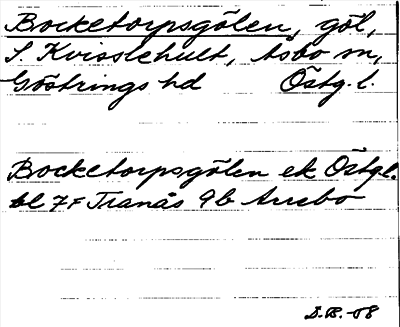 Bocketorpsgölen, göl,
S. Kvisslehult, Asbo sn,
Göstrings hd Östg. l.
Bocketorpsgölen ek Östgl.
bl 7F Tranås 9b Arrebo